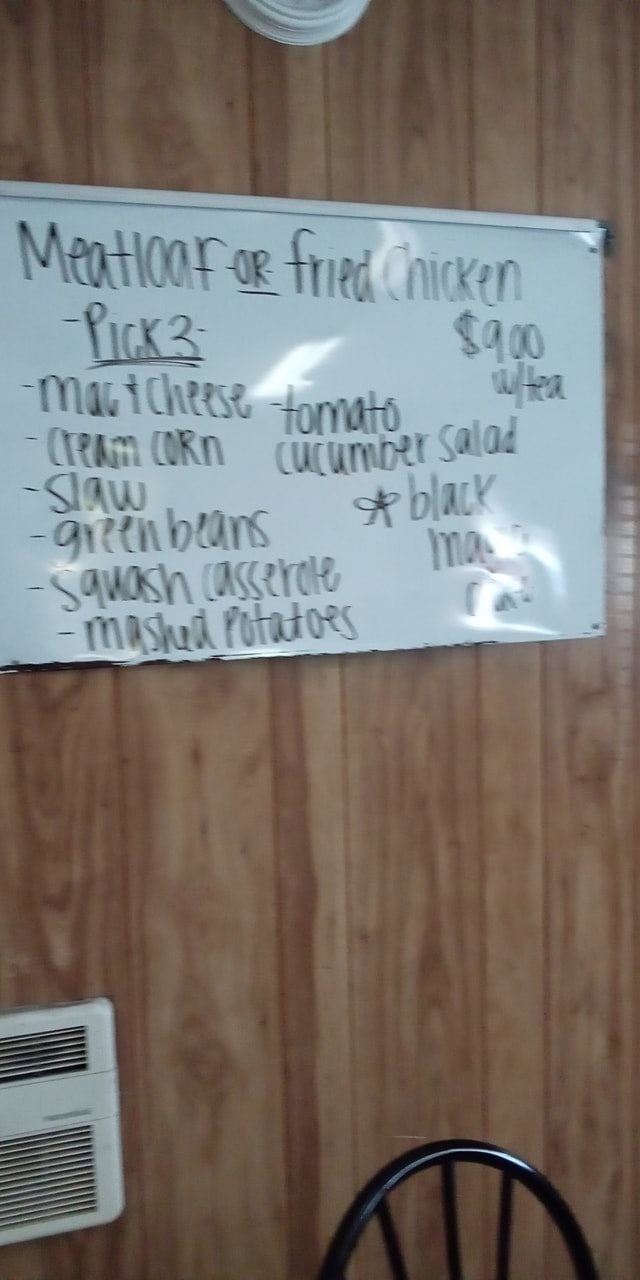 Meatloaf -OR- fried chicken
-Pick 3-
$9.00
w/tea
-mac + cheese
-cream corn
-slaw
-green beans
-squash casserole
-mashed potatoes
-tomato
cucumber salad
* black